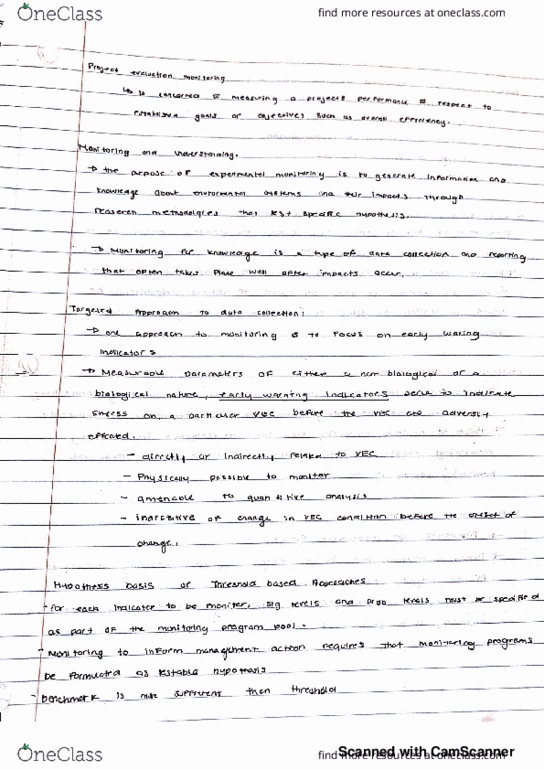 OneClass
find more resources at oneclass.com
Project evaluation monitoring
↳ is concerned w measuring a projects performance w respect to
establish goals or objectives such as overall efficiency.
Monitoring and understanding.
→ the purpose of expermental monitoring is to generate information and
knowledge about enviromental systems and their impacts through
research methodolgies that test specific hypothesis.
→ Monitoring for knowledge is a type of data collection and reporting
that often takes place well after impacts occur.
Targeted Approach To data collection:
→ one approach to monitoring is to focus on early waring
indicators
→ Measurable parameters of either a non biological or a
biological nature, early warning indicators serve to indicate
stress on a particular VEC before the VEC are adversly
effected.
- directly or indirectly related to VEC
- Physically possible to monitor
- amenable to quantitive analysis
- of change in VEC condition before the onset of
change.
Hypothesis basis or Threshold based Approaches
- For each indicator to be moniter, sig levels and prob levels must be specified
as part of the monitoring program
- Monitoring to inform management action requires that monitoring programs
be formulated as testable hypothesis
- benchmark is different then threshold
OneClass
find more resources at oneclass.com
Scanned with CamScanner